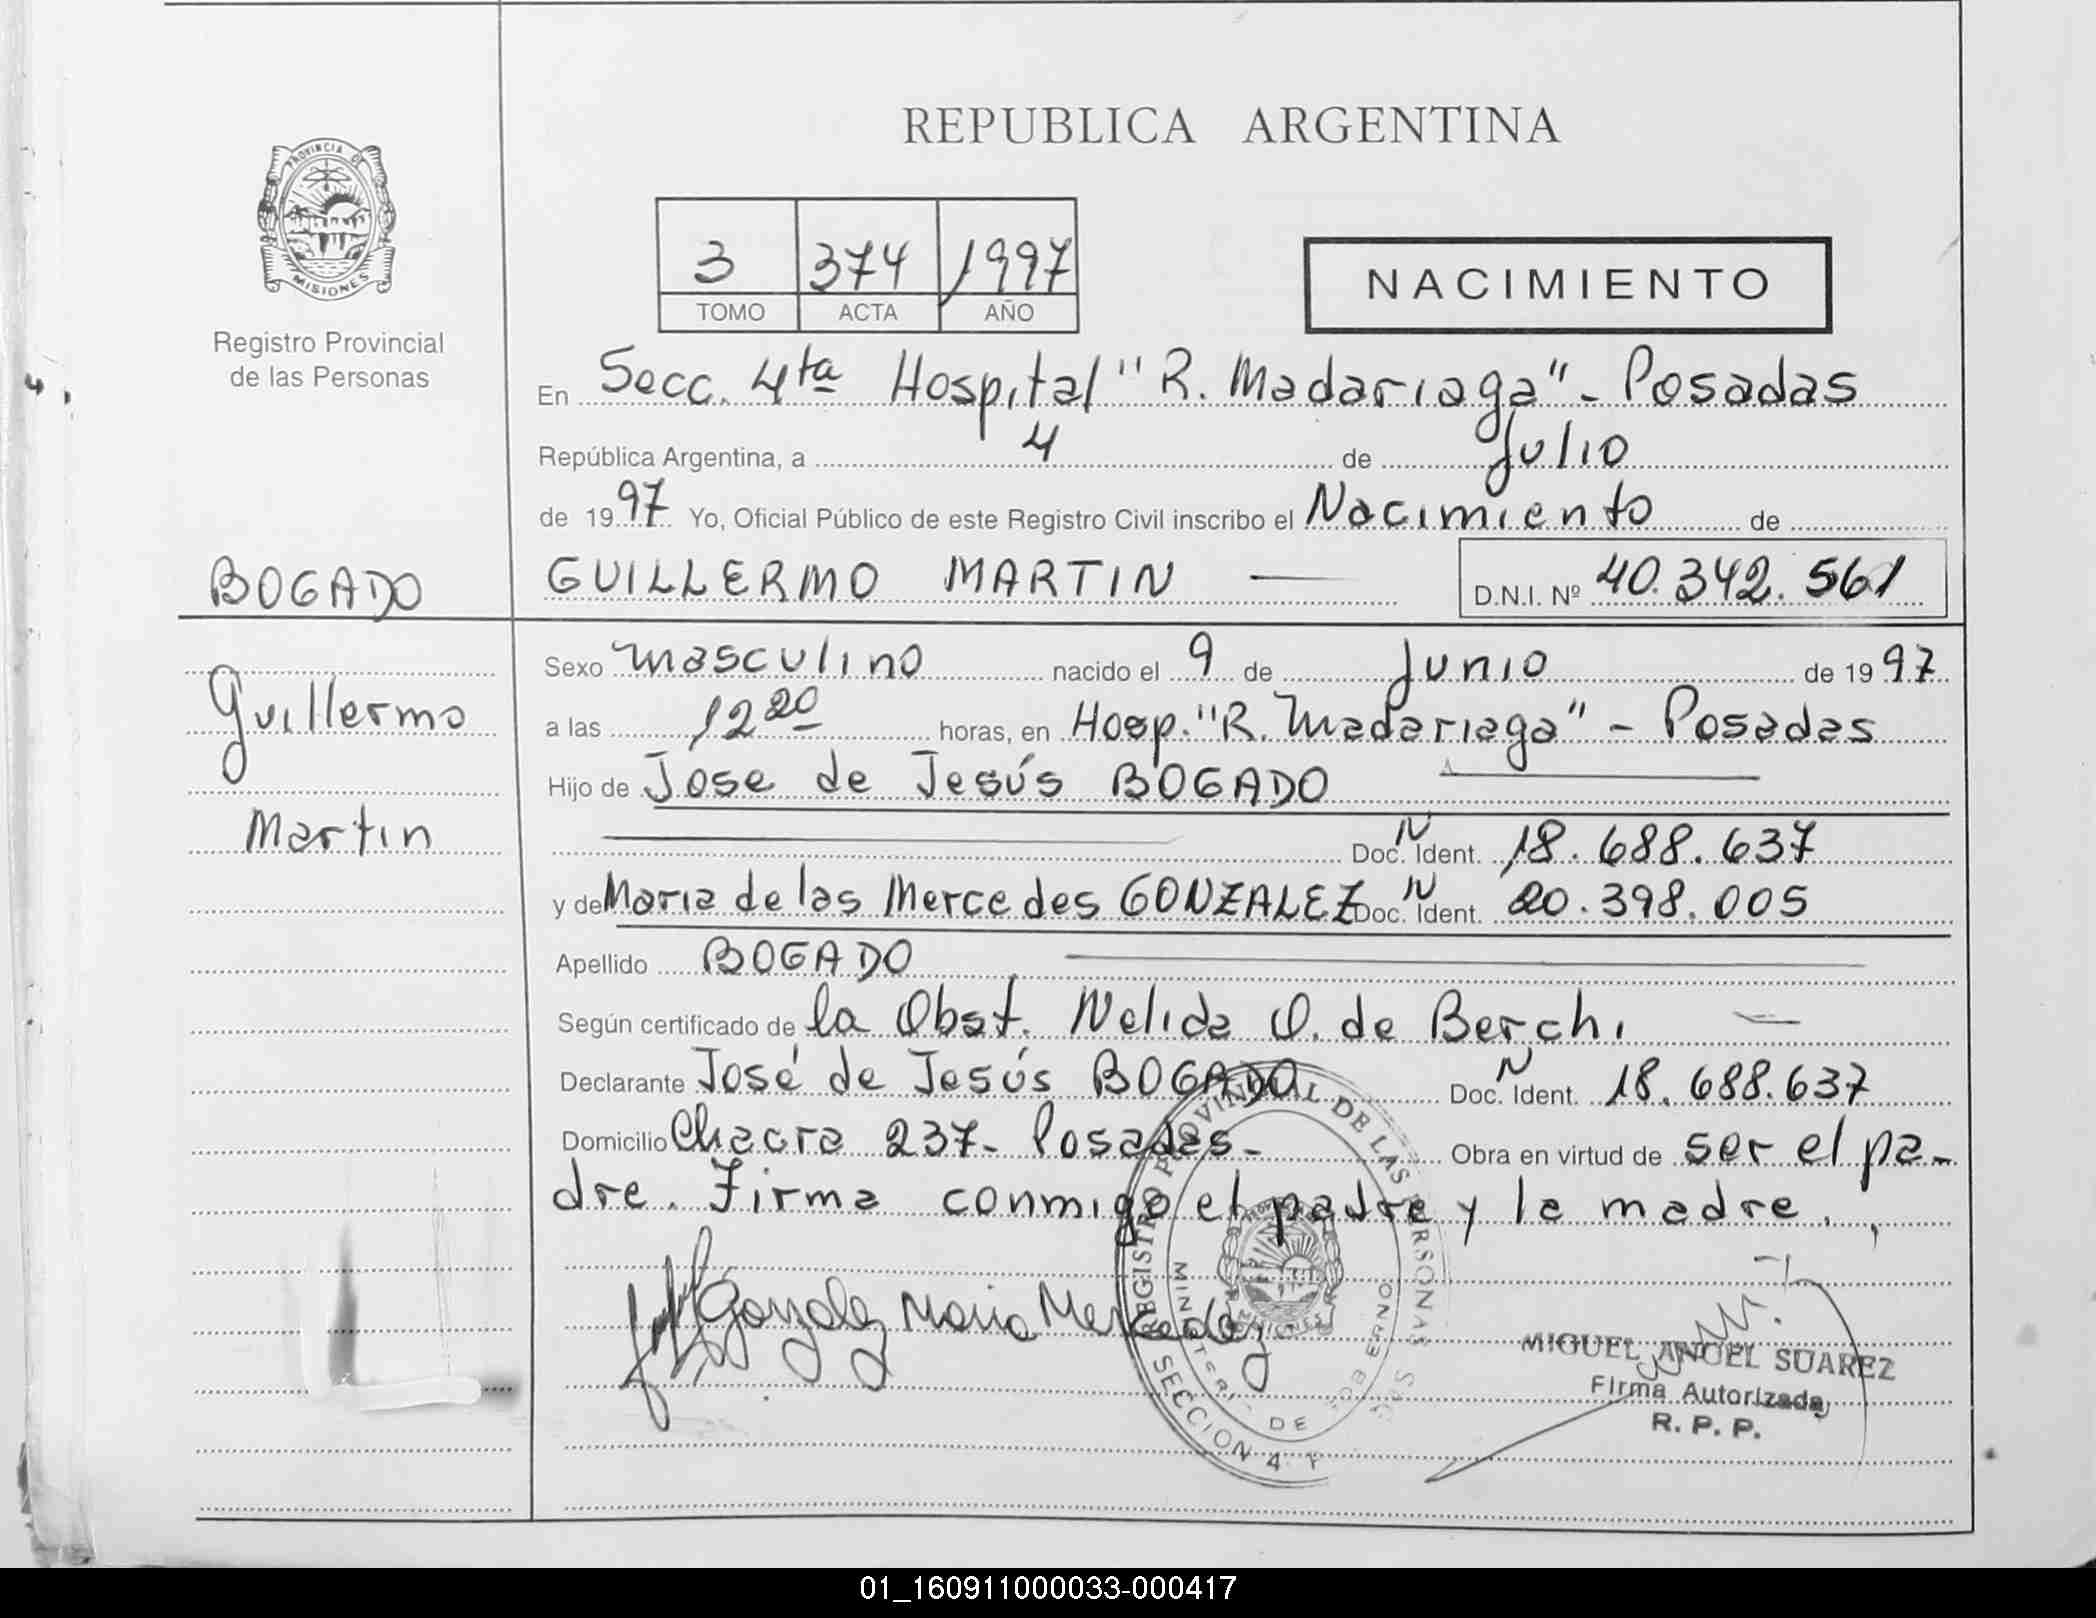 REPUBLICA ARGENTINA
PROVINCIA DE
MISIONES
Registro Provincial
de las Personas
3 374 1997
TOMO ACTA AÑO
NACIMIENTO
En Secc. 4ta Hospital "R. Madariaga" - Posadas
República Argentina, a 4 de Julio
de 1997 Yo, Oficial Público de este Registro Civil inscribo el Nacimiento de
BOGADO
GUILLERMO MARTIN — D.N.I. Nº 40.342.561
Guillermo
Martin
Sexo masculino nacido el 9 de Junio de 1997
a las 12 20 horas, en Hosp. "R. Madariaga" - Posadas
Hijo de Jose de Jesús BOGADO
Doc. N Ident. 18.688.637
y de Maria de las Mercedes GONZALEZ Doc. N Ident. 20.398.005
Apellido BOGADO
Según certificado de la Obst. Nelida O. de Berchi —
Declarante José de Jesús BOGADO Doc. N Ident. 18.688.637
Domicilio Chacra 237- Posadas- Obra en virtud de ser el pa-
dre. Firma conmigo el padre y la madre.
Gonzalez Maria Mercedes
REGISTRO PROVINCIAL DE LAS PERSONAS
MINISTERIO DE GOBIERNO
SECCION 4
MIGUEL ANGEL SUAREZ
Firma Autorizada
R. P. P.
01_160911000033-000417